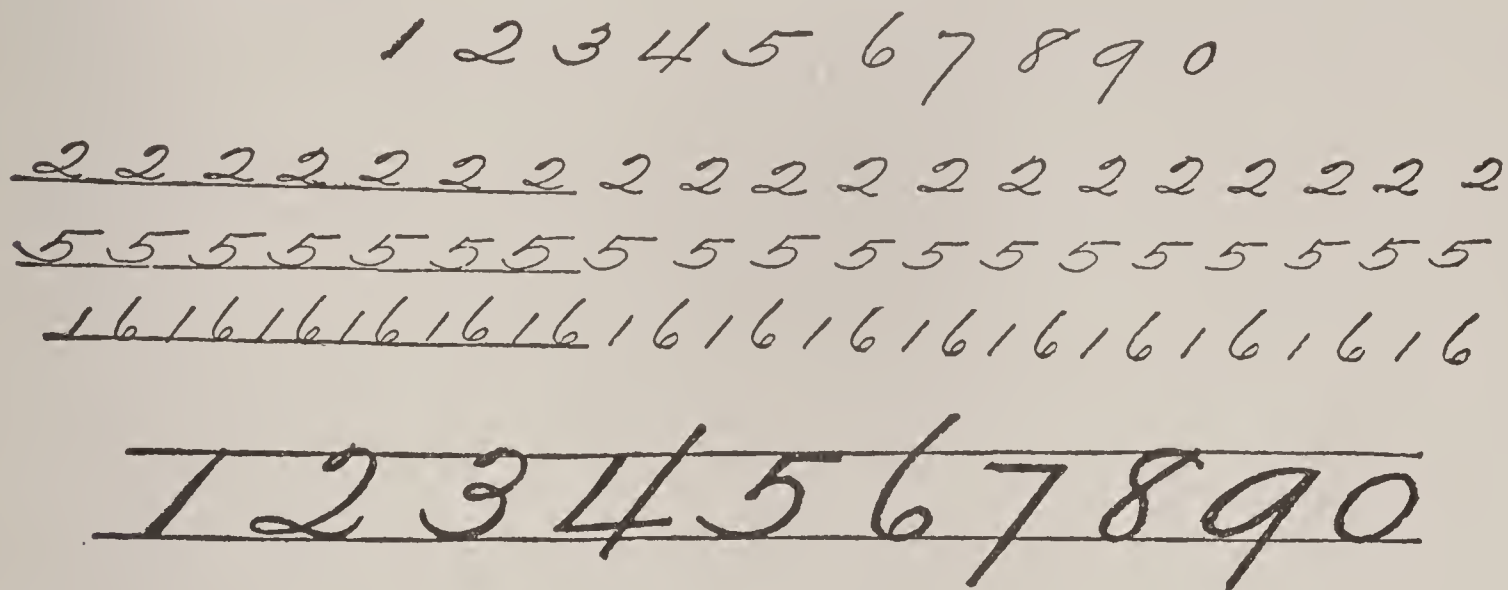 1 2 3 4 5 6 7 8 9 0
2 2 2 2 2 2 2 2 2 2 2 2 2 2 2 2 2 2 2
5 5 5 5 5 5 5 5 5 5 5 5 5 5 5 5 5 5 5
1 6 1 6 1 6 1 6 1 6 1 6 1 6 1 6 1 6 1 6 1 6 1 6 1 6 1 6 1 6
1 2 3 4 5 6 7 8 9 0